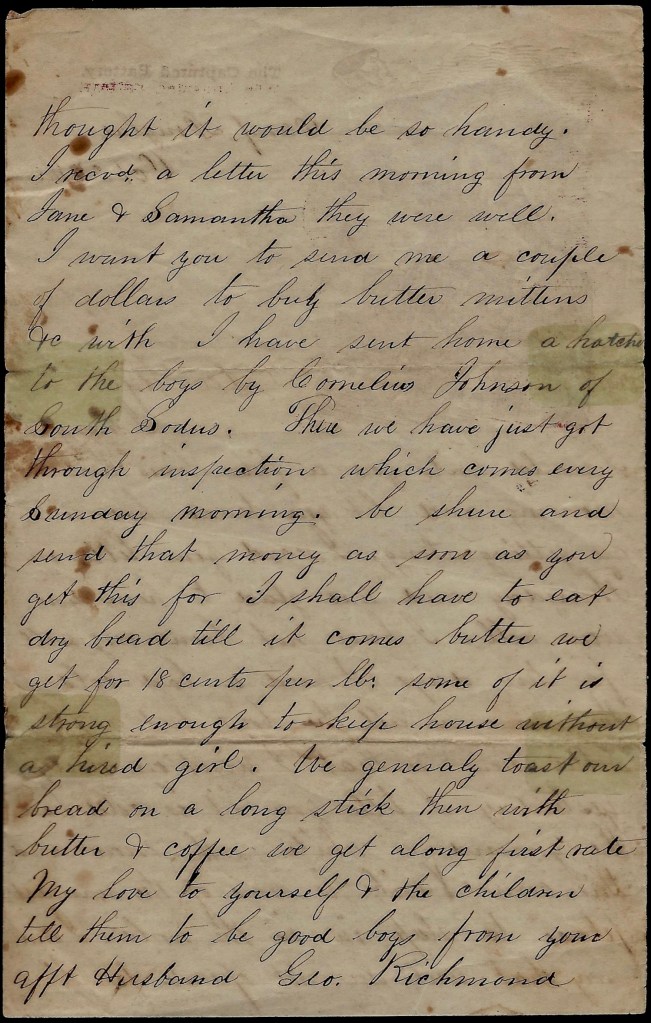 thought it would be so handy.
I recvd. a letter this morning from
Jane & Samantha they were well.
I want you to send me a couple
of dollars to buy butter mittens
&c with I have sent home a hatche
to the boys by Cornelius Johnson of
South Sodus. There we have just got
through inspection which comes every
Sunday morning. be shure and
send that money as soon as you
get this for I shall have to eat
dry bread till it comes butter we
get for 18 cents per lb. some of it is
strong enough to keep house without
a hired girl. We generaly toast our
bread on a long stick then with
butter & coffee we get along first rate
My love to yourself & the children
tell them to be good boys from your
afft Husband Geo. Richmond